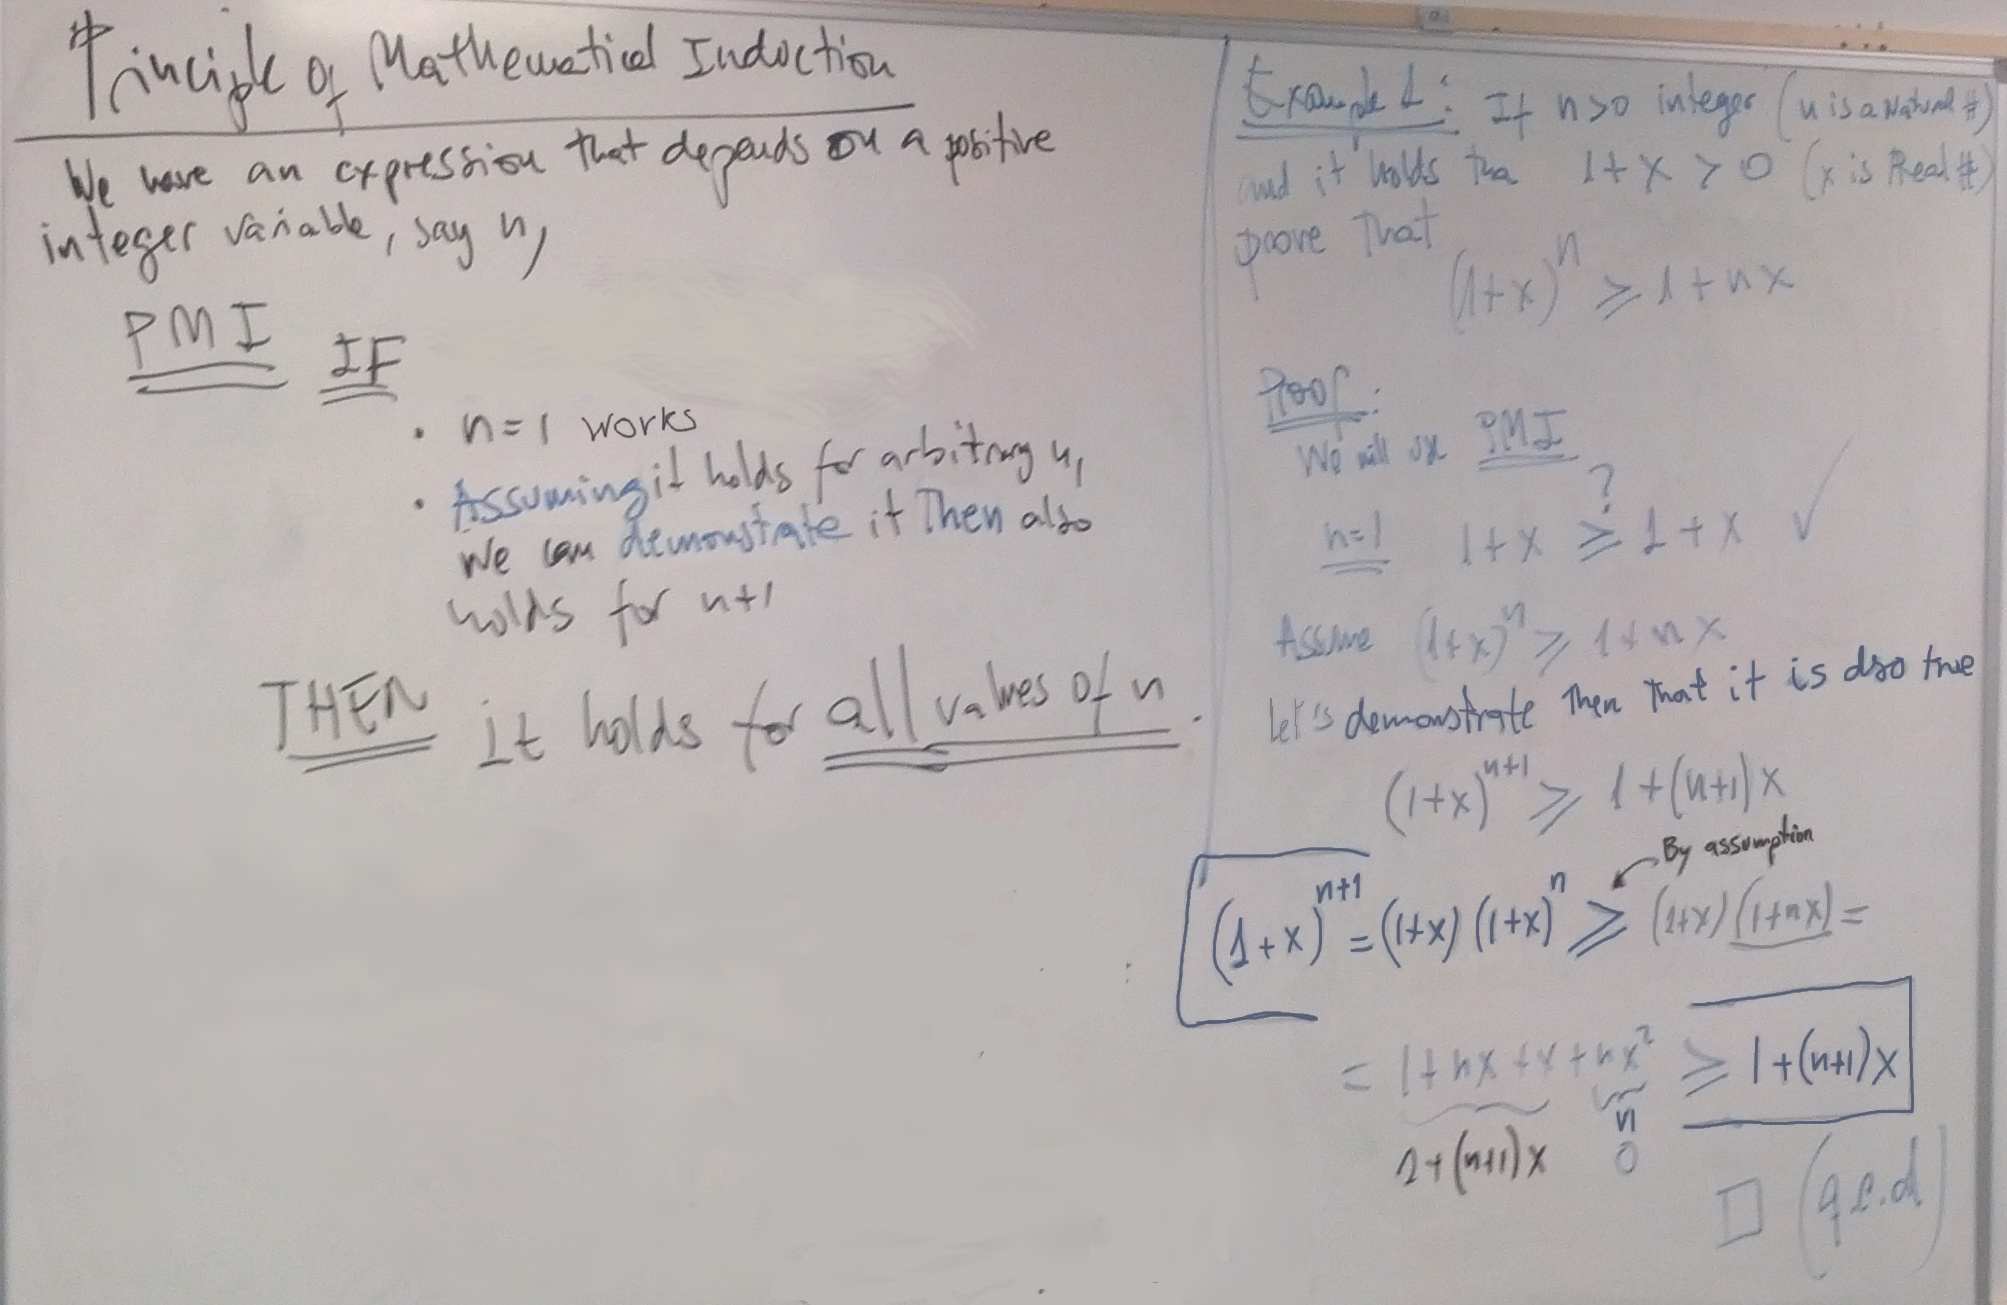 Principle of Mathematical Induction
We have an expression that depends on a positive
integer variable, say n,
PMI IF
• n=1 works
• Assuming it holds for arbitrary n,
We can demonstrate it Then also
holds for n+1
THEN it holds for all values of n.
Example 1: If n>0 integer (n is a Natural #)
and it holds tha 1+x>0 (x is Real #)
prove That
(1+x)^n ≥ 1+nx
Proof:
We will use PMI
?
n=1 1+x ≥ 1+x ✓
Assume (1+x)^n ≥ 1+nx
Let's demonstrate Then that it is also true
(1+x)^{n+1} ≥ 1+(n+1)x
By assumption
(1+x)^{n+1} = (1+x)(1+x)^n ≥ (1+x)(1+nx) =
= 1+nx+x+nx² ≥ 1+(n+1)x
1+(n+1)x
≥
0
□ (q.e.d)